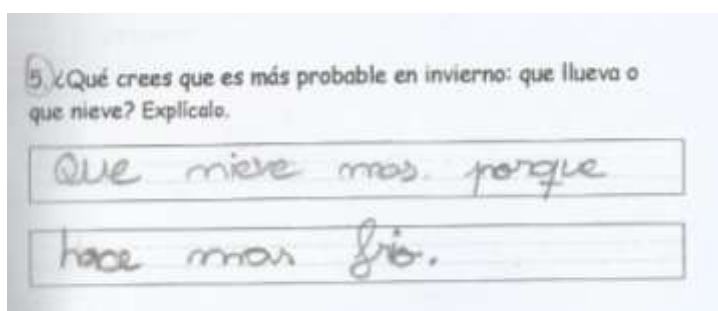 5. ¿Qué crees que es más probable en invierno: que llueva o
que nieve? Explícalo.
Que nieve mas. porque
hace mas frio.